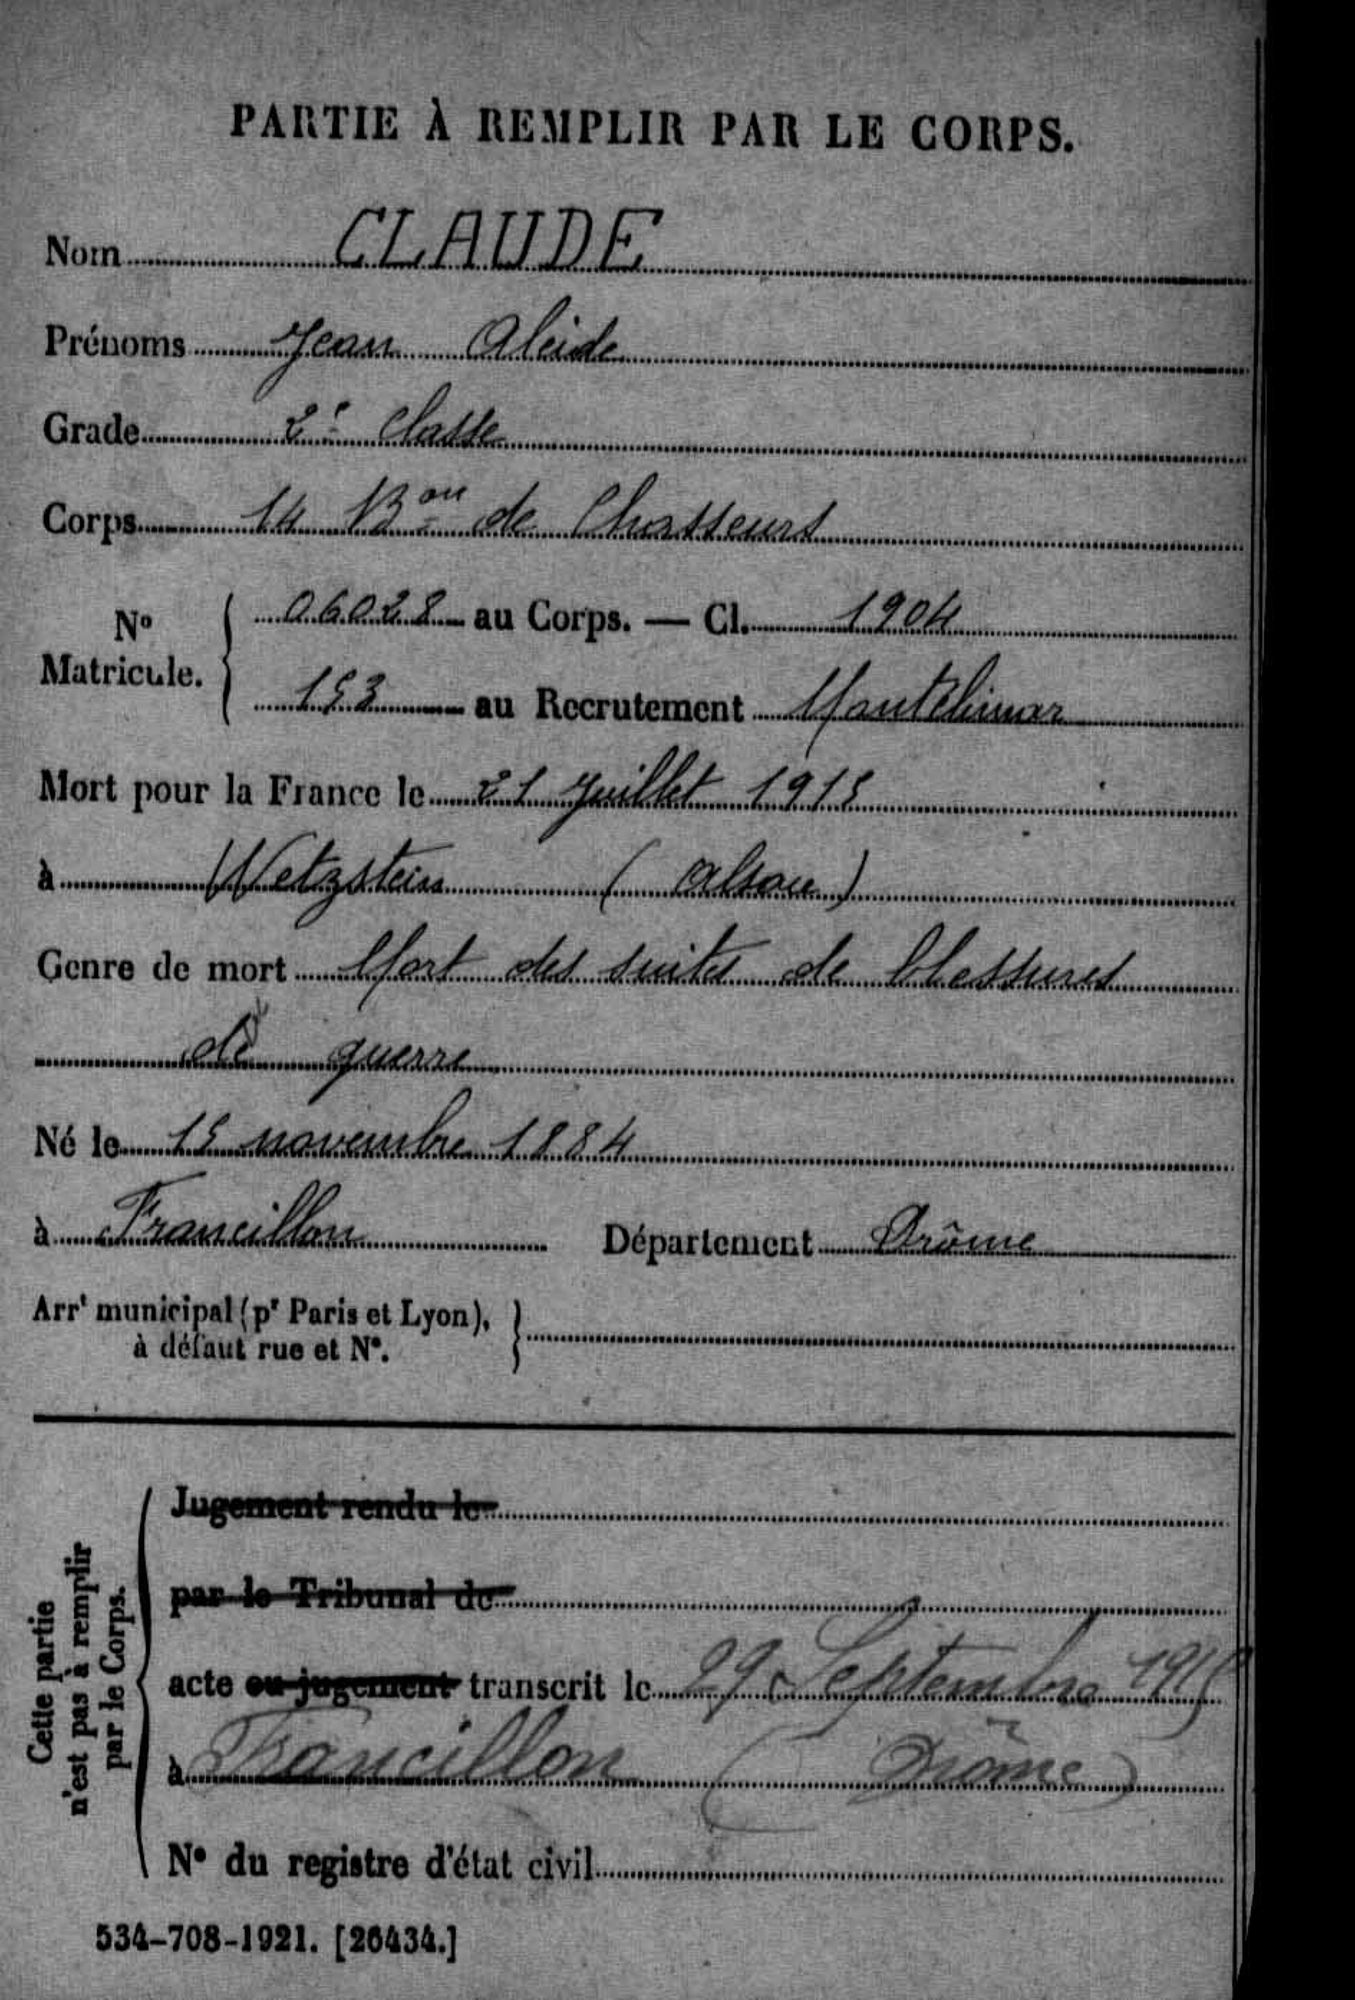 PARTIE À REMPLIR PAR LE CORPS.
Nom CLAUDE
Prénoms Jean Alcide
Grade 2e classe
Corps 14 Bon de Chasseurs
No Matricule. 06028 au Corps. — Cl. 1904
153 au Recrutement Montélimar
Mort pour la France le 21 Juillet 1915
à Wetzstein (Alsace)
Genre de mort Mort des suites de blessures
de guerre
Né le 15 novembre 1884
à Francillon Département Drôme
Arrt municipal (pr Paris et Lyon),
à défaut rue et No.
Jugement rendu le
par le Tribunal de
acte ou jugement transcrit le 29 Septembre 1915
à Francillon (Drôme)
No du registre d'état civil
Cette partie
n'est pas à remplir
par le Corps.
534-708-1921. [26434.]